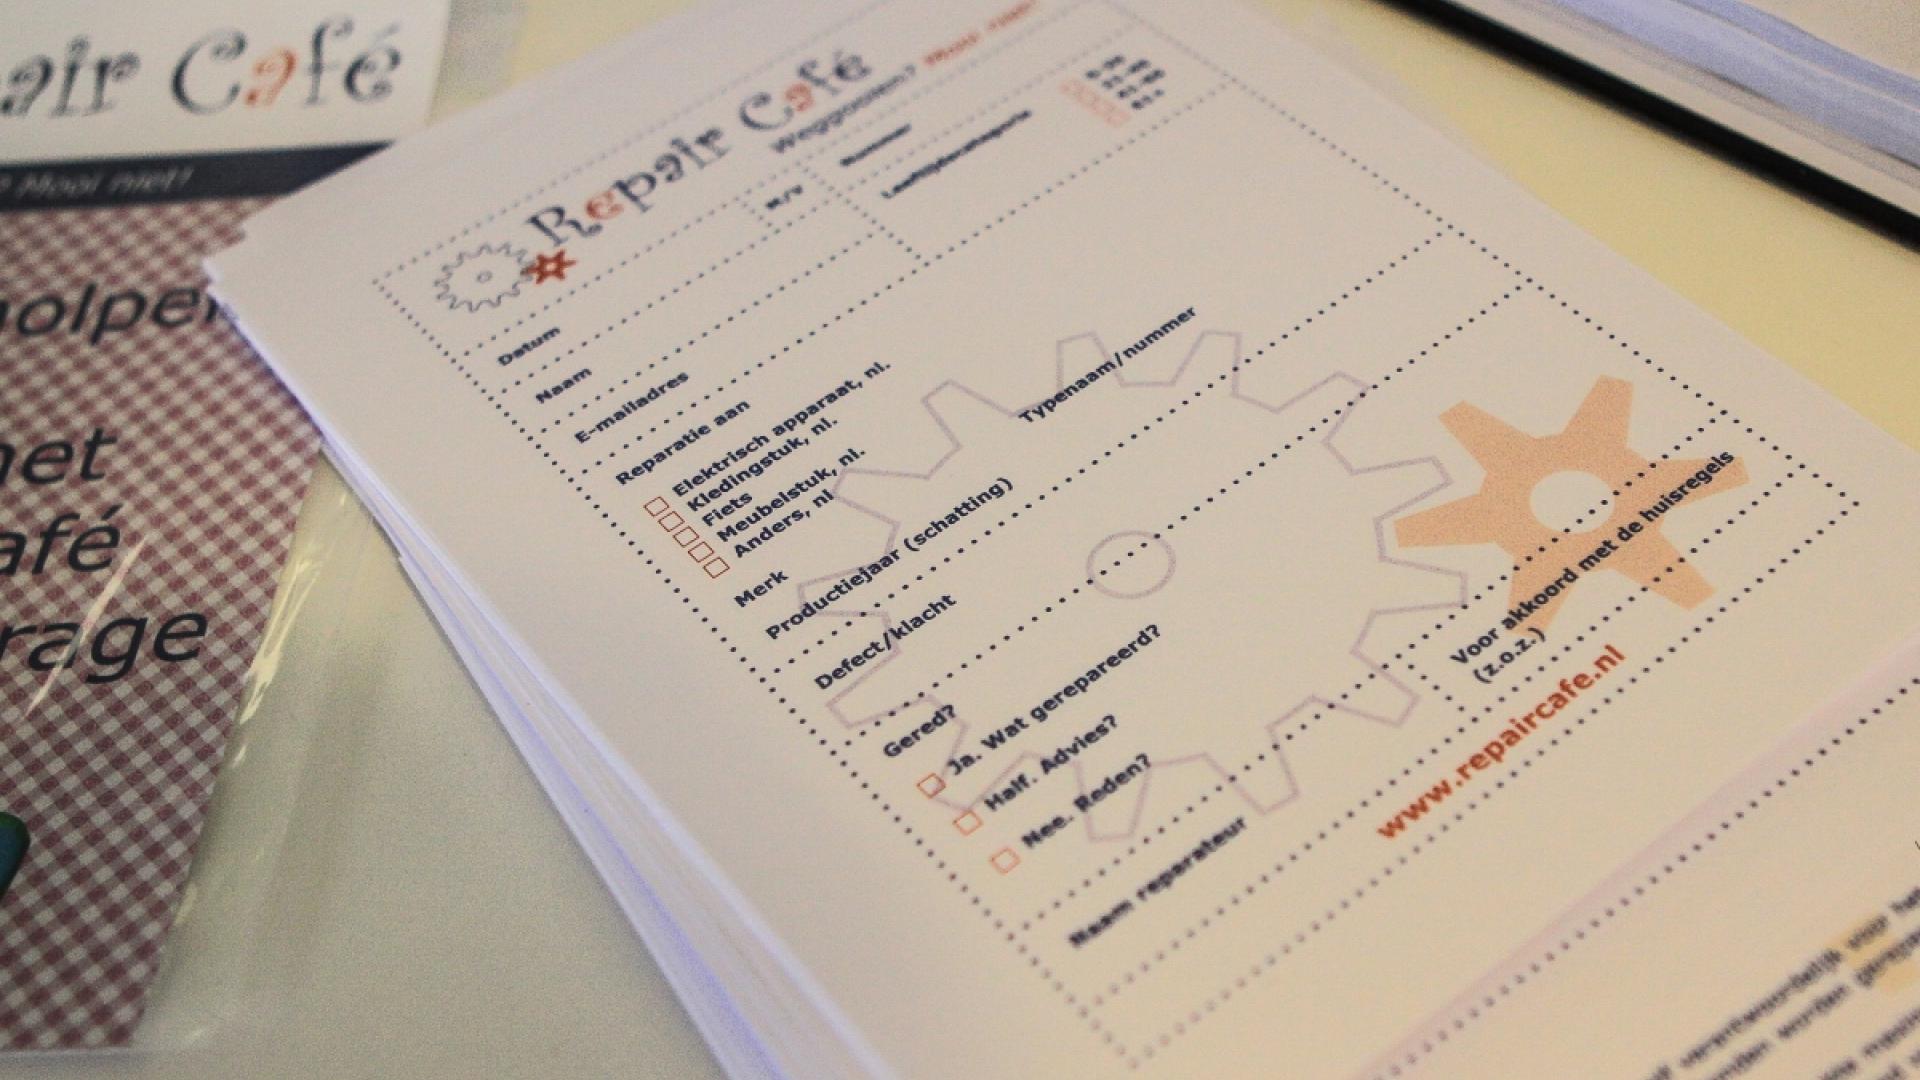 air Café
? Mooi niet!
holpen
het
afé
rage
Repair Café
Weggooien? Mooi niet!
Datum
M/V
Nummer
Naam
Leeftijdscategorie
E-mailadres
Reparatie aan
Elektrisch apparaat, nl.
Kledingstuk, nl.
Fiets
Meubelstuk, nl.
Anders, nl
Merk
Typenaam/nummer
Productiejaar (schatting)
Defect/klacht
Gered?
Ja. Wat gerepareerd?
Half. Advies?
Nee. Reden?
Naam reparateur
Voor akkoord met de huisregels
(z.o.z.)
www.repaircafe.nl
verantwoordelijk voor het
worden